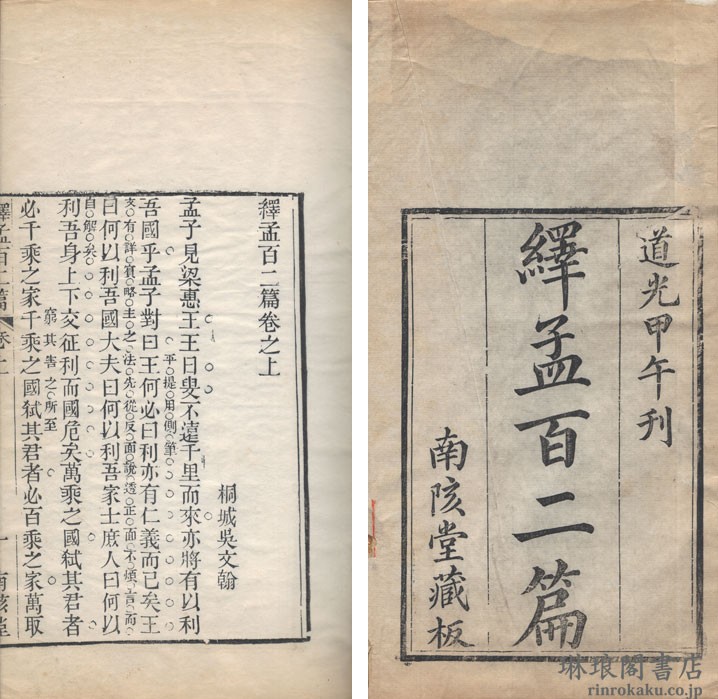 道光甲午刊
繹孟百二篇
南陔堂藏板
琳琅閣書店
rinrokaku.co.jp
繹孟百二篇卷之上
桐城吳文翰
孟子見梁惠王王曰叟不遠千里而來亦將有以利
平提用側筆
吾國乎孟子對曰王何必曰利亦有仁義而已矣王
亥有詳賓略主之法先從反面說透正面不煩言而
曰何以利吾國大夫曰何以利吾家士庶人曰何以
自解矣
利吾身上下交征利而國危矣萬乘之國弒其君者
窮其害之所至
必千乘之家千乘之國弒其君者必百乘之家萬取
繹孟百二篇
卷上
一
南陔堂